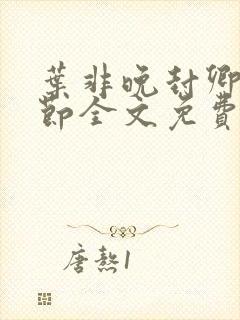 葉非晚封卿
節全文免費
唐熬1